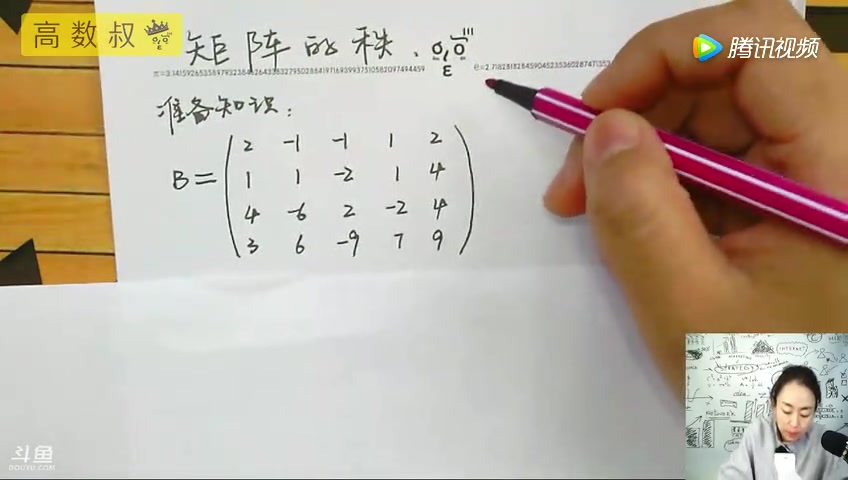 高数叔
矩阵的秩.
腾讯视频
准备知识:
B=
2 -1 -1 1 2
1 1 -2 1 4
4 -6 2 -2 4
3 6 -9 7 9
斗鱼
DOUYU.COM